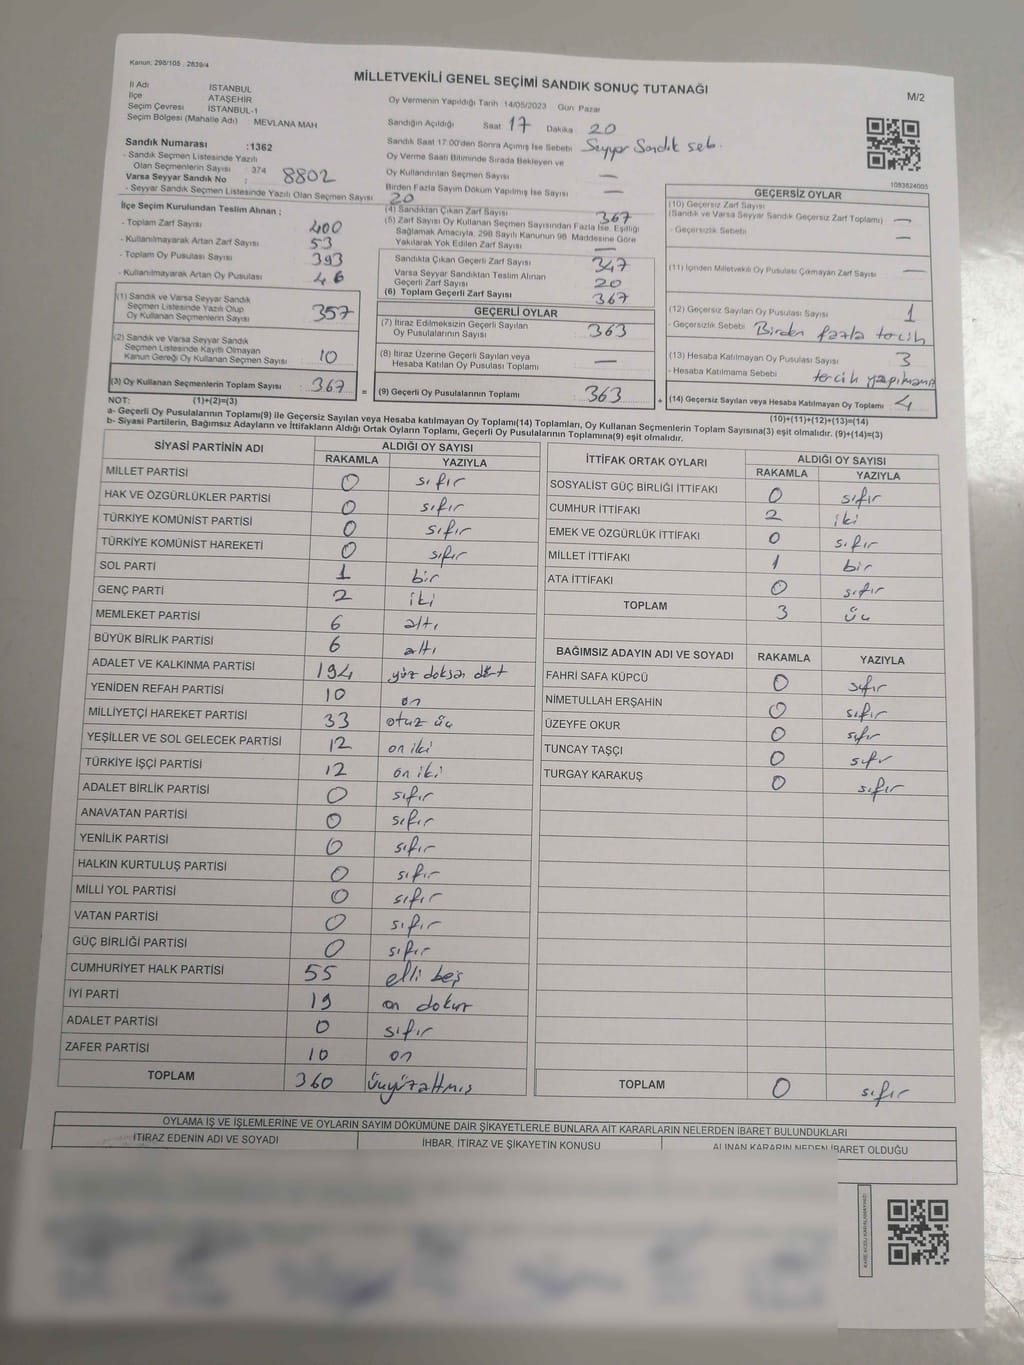 Kanun: 298/105 , 2839/4
MİLLETVEKİLİ GENEL SEÇİMİ SANDIK SONUÇ TUTANAĞI
M/2
İl Adı İSTANBUL
İlçe ATAŞEHİR
Seçim Çevresi İSTANBUL-1
Seçim Bölgesi (Mahalle Adı) : MEVLANA MAH
Oy Vermenin Yapıldığı Tarih 14/05/2023 Gün Pazar
Sandığın Açıldığı Saat 17 Dakika 20
Sandık Numarası :1362
- Sandık Seçmen Listesinde Yazılı
Olan Seçmenlerin Sayısı : 374
Varsa Seyyar Sandık No : 8802
- Seyyar Sandık Seçmen Listesinde Yazılı Olan Seçmen Sayısı 20
Sandık Saat 17.00'den Sonra Açımış İse Sebebi Seyyar Sandık seb.
Oy Verme Saati Bitiminde Sırada Bekleyen ve
Oy Kullandırılan Seçmen Sayısı —
Birden Fazla Sayım Döküm Yapılmış İse Sayısı —
1083824005
İlçe Seçim Kurulundan Teslim Alınan ;
- Toplam Zarf Sayısı 400
- Kullanılmayarak Artan Zarf Sayısı 53
- Toplam Oy Pusulası Sayısı 393
- Kullanılmayarak Artan Oy Pusulası 46
(1) Sandık ve Varsa Seyyar Sandık
Seçmen Listesinde Yazılı Olup
Oy Kullanan Seçmenlerin Sayısı : 357
(2) Sandık ve Varsa Seyyar Sandık
Seçmen Listesinde Kayıtlı Olmayan
Kanun Gereği Oy Kullanan Seçmen Sayısı : 10
(3) Oy Kullanan Seçmenlerin Toplam Sayısı : 367 =
(4) Sandıktan Çıkan Zarf Sayısı 367
(5) Zarf Sayısı Oy Kullanan Seçmen Sayısından Fazla İse, Eşitliği
Sağlamak Amacıyla, 298 Sayılı Kanunun 98. Maddesine Göre
Yakılarak Yok Edilen Zarf Sayısı —
Sandıkta Çıkan Geçerli Zarf Sayısı 347
Varsa Seyyar Sandıktan Teslim Alınan
Geçerli Zarf Sayısı 20
(6) Toplam Geçerli Zarf Sayısı 367
GEÇERLİ OYLAR
(7) İtiraz Edilmeksizin Geçerli Sayılan
Oy Pusulalarının Sayısı : 363
(8) İtiraz Üzerine Geçerli Sayılan veya
Hesaba Katılan Oy Pusulası Toplamı : —
(9) Geçerli Oy Pusulalarının Toplamı : 363 +
GEÇERSİZ OYLAR
(10) Geçersiz Zarf Sayısı
(Sandık ve Varsa Seyyar Sandık Geçersiz Zarf Toplamı) —
- Geçersizlik Sebebi —
(11) İçinden Milletvekili Oy Pusulası Çıkmayan Zarf Sayısı —
(12) Geçersiz Sayılan Oy Pusulası Sayısı 1
- Geçersizlik Sebebi Birden fazla tercih
(13) Hesaba Katılmayan Oy Pusulası Sayısı 3
- Hesaba Katılmama Sebebi tercih yapılmamış
(14) Geçersiz Sayılan veya Hesaba Katılmayan Oy Toplamı : 4
NOT: (1)+(2)=(3)
(10)+(11)+(12)+(13)=(14)
a- Geçerli Oy Pusulalarının Toplamı(9) ile Geçersiz Sayılan veya Hesaba katılmayan Oy Toplamı(14) Toplamları, Oy Kullanan Seçmenlerin Toplam Sayısına(3) eşit olmalıdır. (9)+(14)=(3)
b- Siyasi Partilerin, Bağımsız Adayların ve İttifakların Aldığı Ortak Oyların Toplamı, Geçerli Oy Pusulalarının Toplamına(9) eşit olmalıdır.
SİYASİ PARTİNİN ADI ALDIĞI OY SAYISI
RAKAMLA YAZIYLA
MİLLET PARTİSİ 0 sıfır
HAK VE ÖZGÜRLÜKLER PARTİSİ 0 sıfır
TÜRKİYE KOMÜNİST PARTİSİ 0 sıfır
TÜRKİYE KOMÜNİST HAREKETİ 0 sıfır
SOL PARTİ 1 bir
GENÇ PARTİ 2 iki
MEMLEKET PARTİSİ 6 altı
BÜYÜK BİRLİK PARTİSİ 6 altı
ADALET VE KALKINMA PARTİSİ 194 yüz doksan dört
YENİDEN REFAH PARTİSİ 10 on
MİLLİYETÇİ HAREKET PARTİSİ 33 otuz üç
YEŞİLLER VE SOL GELECEK PARTİSİ 12 on iki
TÜRKİYE İŞÇİ PARTİSİ 12 on iki
ADALET BİRLİK PARTİSİ 0 sıfır
ANAVATAN PARTİSİ 0 sıfır
YENİLİK PARTİSİ 0 sıfır
HALKIN KURTULUŞ PARTİSİ 0 sıfır
MİLLİ YOL PARTİSİ 0 sıfır
VATAN PARTİSİ 0 sıfır
GÜÇ BİRLİĞİ PARTİSİ 0 sıfır
CUMHURİYET HALK PARTİSİ 55 elli beş
İYİ PARTİ 19 on dokuz
ADALET PARTİSİ 0 sıfır
ZAFER PARTİSİ 10 on
TOPLAM 360 üçyüzaltmış
İTTİFAK ORTAK OYLARI ALDIĞI OY SAYISI
RAKAMLA YAZIYLA
SOSYALİST GÜÇ BİRLİĞİ İTTİFAKI 0 sıfır
CUMHUR İTTİFAKI 2 iki
EMEK VE ÖZGÜRLÜK İTTİFAKI 0 sıfır
MİLLET İTTİFAKI 1 bir
ATA İTTİFAKI 0 sıfır
TOPLAM 3 üç
BAĞIMSIZ ADAYIN ADI VE SOYADI RAKAMLA YAZIYLA
FAHRİ SAFA KÜPCÜ 0 sıfır
NİMETULLAH ERŞAHİN 0 sıfır
ÜZEYFE OKUR 0 sıfır
TUNCAY TAŞÇI 0 sıfır
TURGAY KARAKUŞ 0 sıfır
TOPLAM 0 sıfır
OYLAMA İŞ VE İŞLEMLERİNE VE OYLARIN SAYIM DÖKÜMÜNE DAİR ŞİKAYETLERLE BUNLARA AİT KARARLARIN NELERDEN İBARET BULUNDUKLARI
İTİRAZ EDENİN ADI VE SOYADI İHBAR, İTİRAZ VE ŞİKAYETİN KONUSU ALINAN KARARIN NEDEN İBARET OLDUĞU